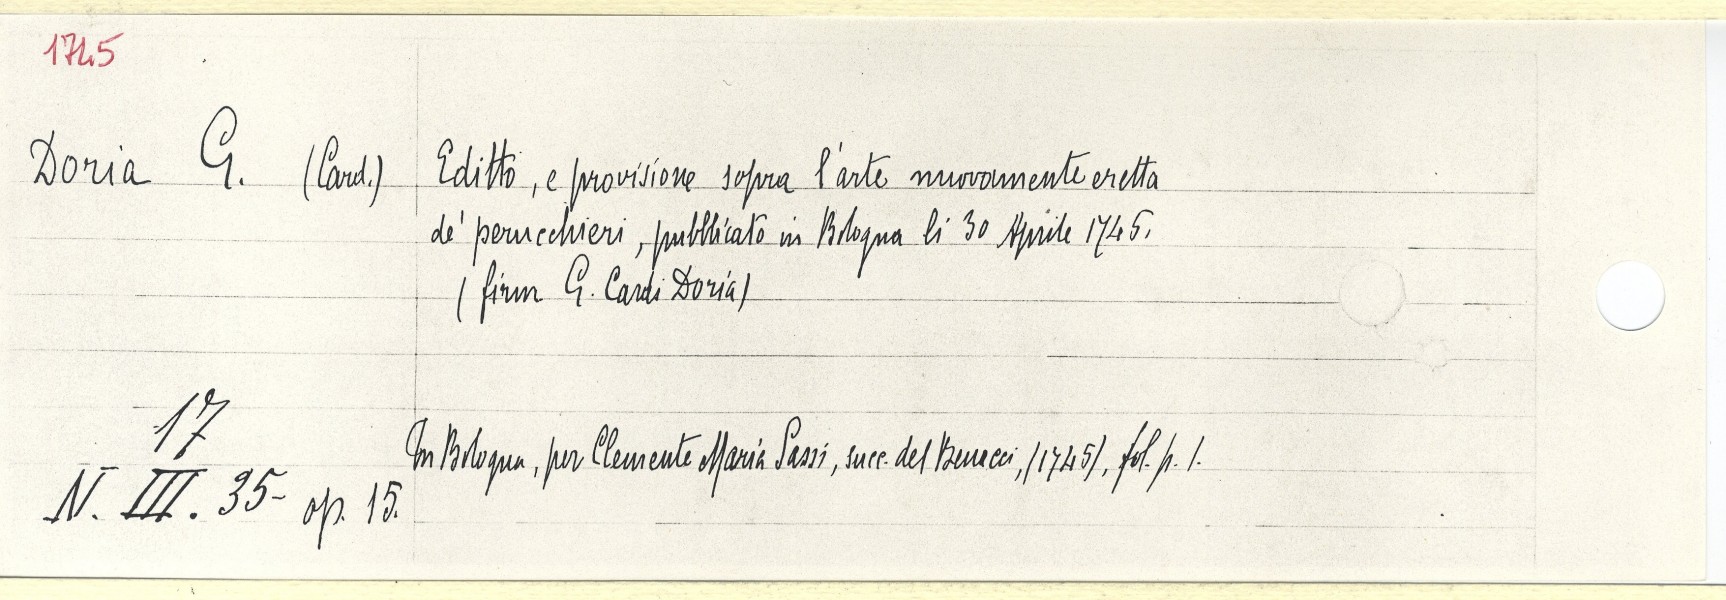 1745
Doria G. (Card.)
Editto, e provisione sopra l'arte nuovamente eretta
de' perucchieri, pubblicato in Bologna li 30 Aprile 1745.
(firm G. Card. Doria)
17
N. III. 35- op. 15.
In Bologna, per Clemente Maria Sassi, succ. del Benacci, (1745), fol. p. 1.